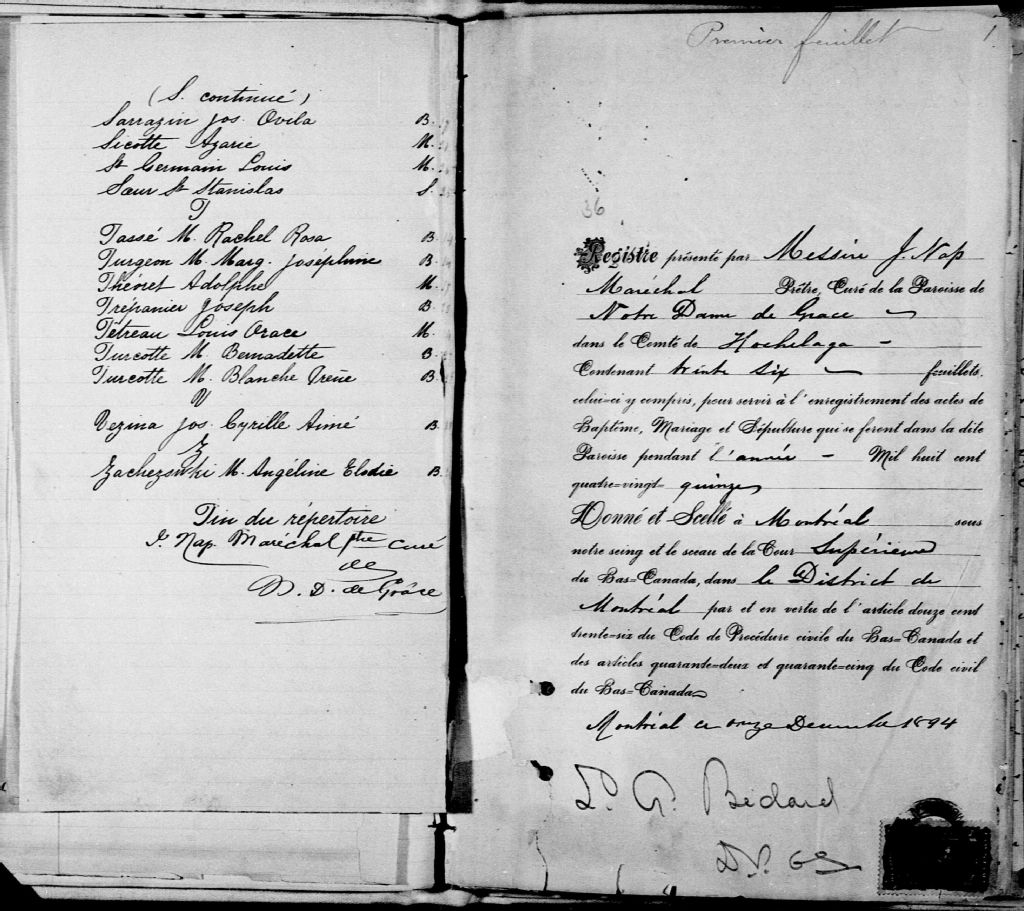 (S. continué)
Sarrazin Jos. Ovila B.
Sicotte Azarie M.
St Germain Louis M.
Sœur St Stanislas S.
T
Tassé M. Rachel Rosa B.
Turgeon M. Marg. Joséphine B
Théoret Adolphe M.
Trépanier Joseph B
Têtreau Louis Orace M.
Turcotte M. Bernadette B
Turcotte M. Blanche Irène B
V
Vezina Jos. Cyrille Aimé B
Z
Zachezewki M. Angéline Elodie B
Fin du répertoire
J. Nap. Maréchal ptre curé
de
N. D. de Grâce
Premier feuillet 1
36
Registre présenté par Messire J. Nap
Maréchal Prêtre, Curé de la Paroisse de
Notre Dame de Grace
dans le Comté de Hochelaga
Contenant trente six feuillets,
celui-ci y compris, pour servir à l'enregistrement des actes de
Baptême, Mariage et Sépulture qui se feront dans la dite
Paroisse pendant l'année Mil huit cent
quatre-vingt quinze
Donné et Scellé à Montréal sous
notre seing et le sceau de la Cour Supérieure
du Bas-Canada, dans le District de
Montréal par et en vertu de l'article douze cent
trente-six du Code de Procédure civile du Bas-Canada et
des articles quarante-deux et quarante-cinq du Code civil
du Bas-Canada
Montréal ce onze Decembre 1894
Bedard